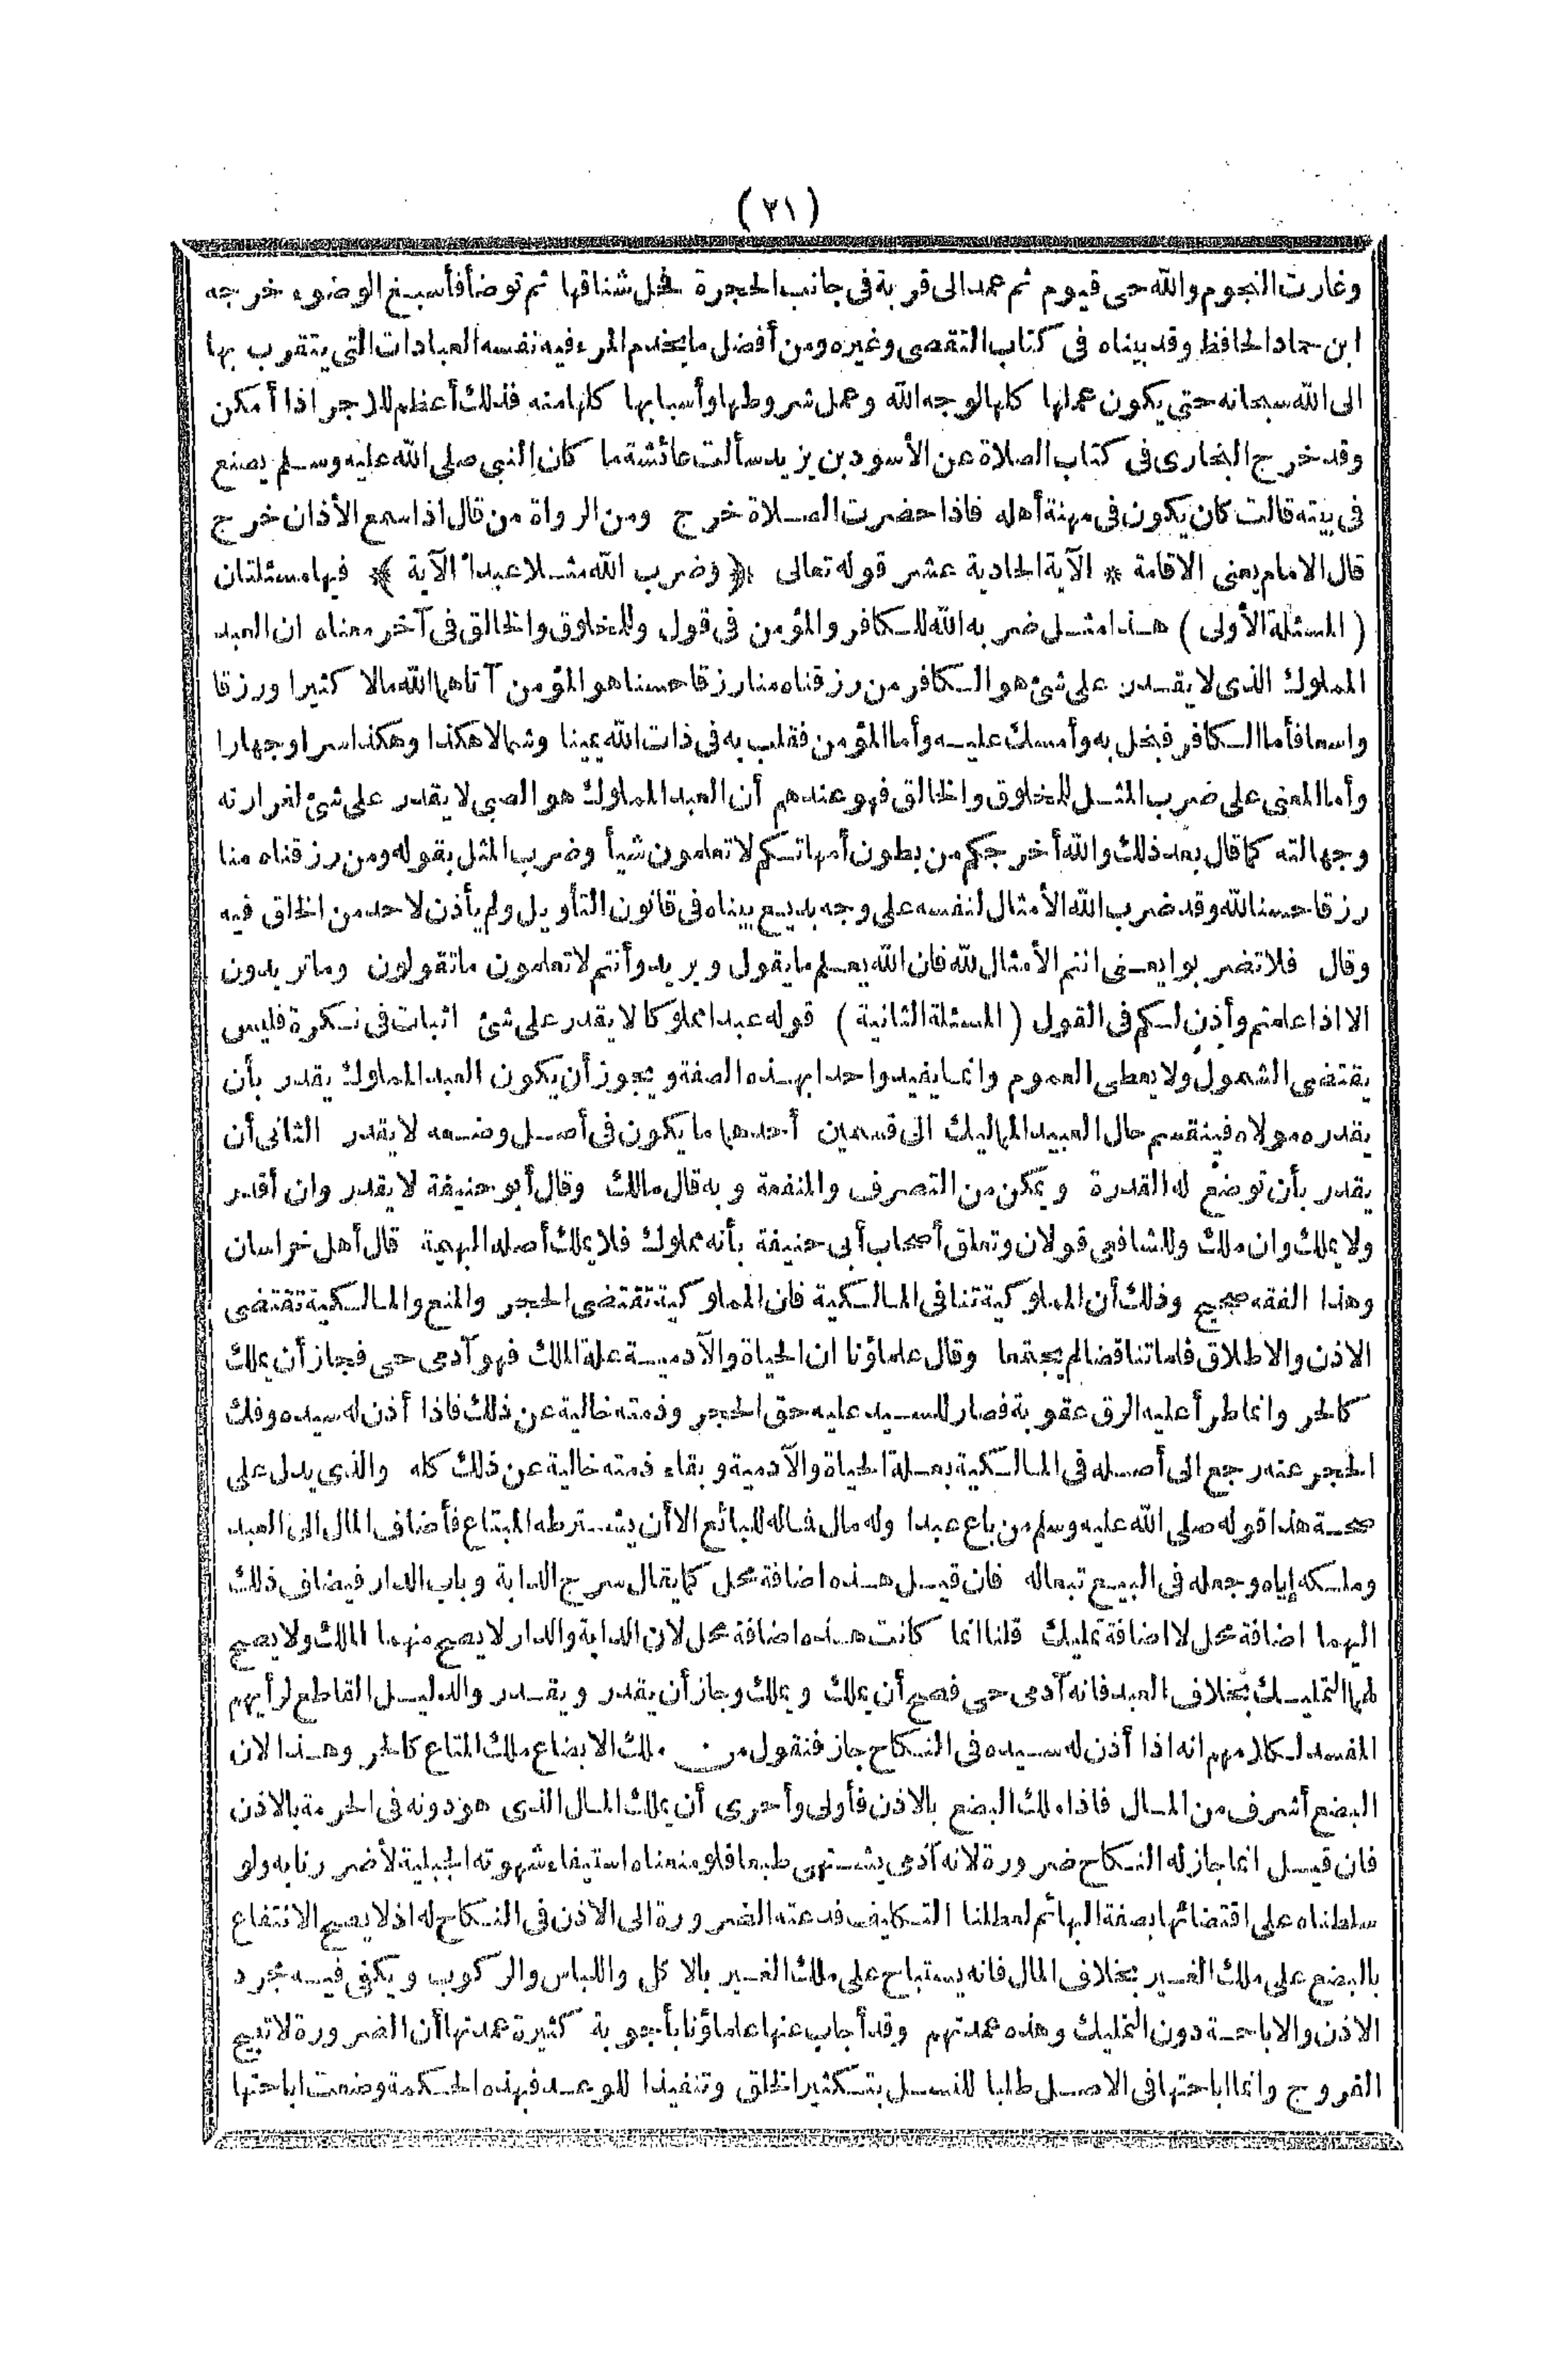 (٢١)
وغارت النجوم والله حى قيوم ثم عمد الى قربة فى جانب الحجرة فحل شناقها ثم توضأ فأسبغ الوضوء خرجه
ابن حماد الحافظ وقد بيناه فى كتاب التقصى وغيره ومن أفضل ما يخدم المرء فيه نفسه العبادات التى يتقرب بها
الى الله سبحانه حتى يكون عملها كلها لوجه الله وعمل شروطها وأسبابها كلها منه فذلك أعظم للاجر اذا أمكن
وقد خرج البخارى فى كتاب الصلاة عن الأسود بن يزيد سألت عائشة ما كان النبى صلى الله عليه وسلم يصنع
فى بيته قالت كان يكون فى مهنة أهله فاذا حضرت الصلاة خرج ومن الرواة من قال اذا سمع الأذان خرج
قال الامام يعنى الاقامة * الآية الحادية عشر قوله تعالى ﴿ وضرب الله مثلا عبدا الآية ﴾ فيها مسئلتان
( المسئلة الأولى ) هذا مثل ضربه الله للكافر والمؤمن فى قول وللمخلوق والخالق فى آخر معناه ان العبد
المملوك الذى لا يقدر على شئ هو الكافر من رزقناه منا رزقا حسنا هو المؤمن آتاهما الله مالا كثيرا ورزقا
واسعا فأما الكافر فبخل به وأمسك عليه وأما المؤمن فقلب به فى ذات الله يمينا وشمالا هكذا وهكذا سرا وجهارا
وأما المعنى على ضرب المثل للمخلوق والخالق فهو عندهم أن العبد المملوك هو الصبى لا يقدر على شئ لغرارته
وجهالته كما قال بعد ذلك والله أخرجكم من بطون أمهاتكم لا تعلمون شيأ وضرب المثل بقوله ومن رزقناه منا
رزقا حسنا لله وقد ضرب الله الأمثال لنفسه على وجه بديع بيناه فى قانون التأويل ولم يأذن لاحد من الخلق فيه
وقال فلا تضربوا يعنى انتم الأمثال لله فان الله يعلم ما يقول ويريد وأنتم لا تعلمون ما تقولون وما تريدون
الا اذا علمتم وأذن لكم فى القول ( المسئلة الثانية ) قوله عبدا مملوكا لا يقدر على شئ اثبات فى نكرة فليس
يقتضى الشمول ولا يعطى العموم وانما يفيد واحدا بهذه الصفة ويجوز أن يكون العبد المملوك يقدر بأن
يقدره مولاه فينقسم حال العبيد المماليك الى قسمين أحدهما ما يكون فى أصل وضعه لا يقدر الثانى أن
يقدر بأن توضع له القدرة ويمكن من التصرف والمنفعة وبه قال مالك وقال أبو حنيفة لا يقدر وان أقدر
ولا يملك وان ملك وللشافعى قولان وتعلق أصحاب أبى حنيفة بأنه مملوك فلا يملك أصله البهيمة قال أهل خراسان
وهذا الفقه صحيح وذلك أن المملوكية تنافى المالكية فان المملوكية تقتضى الحجر والمنع والمالكية تقتضى
الاذن والاطلاق فلما تناقضا لم يجتمعا وقال علماؤنا ان الحياة والآدمية علة الملك فهو آدمى حى فجاز أن يملك
كالحر وانما طرأ عليه الرق عقوبة فصار للسيد عليه حق الحجر وذمته خالية عن ذلك فاذا أذن له سيده وفك
الحجر عنه رجع الى أصله فى المالكية بعلة الحياة والآدمية وبقاء ذمته خالية عن ذلك كله والذى يدل على
صحة هذا قوله صلى الله عليه وسلم من باع عبدا وله مال فماله للبائع الا أن يشترطه المبتاع فأضاف المال الى العبد
وملكه إياه وجعله فى البيع تبعاله فان قيل هذه اضافة محل كما يقال سرج الدابة وباب الدار فيضاف ذلك
اليهما اضافة محل لا اضافة تمليك قلنا انما كانت هذه اضافة محل لان الدابة والدار لا يصح منهما الملك ولا يصح
لهما التمليك بخلاف العبد فانه آدمى حى فصح أن يملك ويملك وجاز أن يقدر ويقدر والدليل القاطع لرأيهم
المفسد لكلامهم انه اذا أذن له سيده فى النكاح جاز فنقول من ملك الابضاع ملك المتاع كالحر وهذا لان
البضع أشرف من المال فاذا ملك البضع بالاذن فأولى وأحرى أن يملك المال الذى هو دونه فى الحرمة بالاذن
فان قيل انما جاز له النكاح ضرورة لانه آدمى يشتهى طبعا فلو منعناه استيفاء شهوته الجبلية لأضررنا به ولو
سلطناه على اقتضائها بصفة البهائم لعطلنا التكليف فدعته الضرورة الى الاذن فى النكاح له اذ لا يصح الانتفاع
بالبضع على ملك الغير بخلاف المال فانه يستباح على ملك الغير بالاكل واللباس والركوب ويكفى فيه مجرد
الاذن والاباحة دون التمليك وهذه عمدتهم وقد أجاب عنها علماؤنا بأجوبة كثيرة عمدتها أن الضرورة لا تبيح
الفروج وانما اباحتها فى الاصل طلبا للنسل بتكثير الخلق وتنفيذا للوعد فبهذه الحكمة وضعت اباحتها